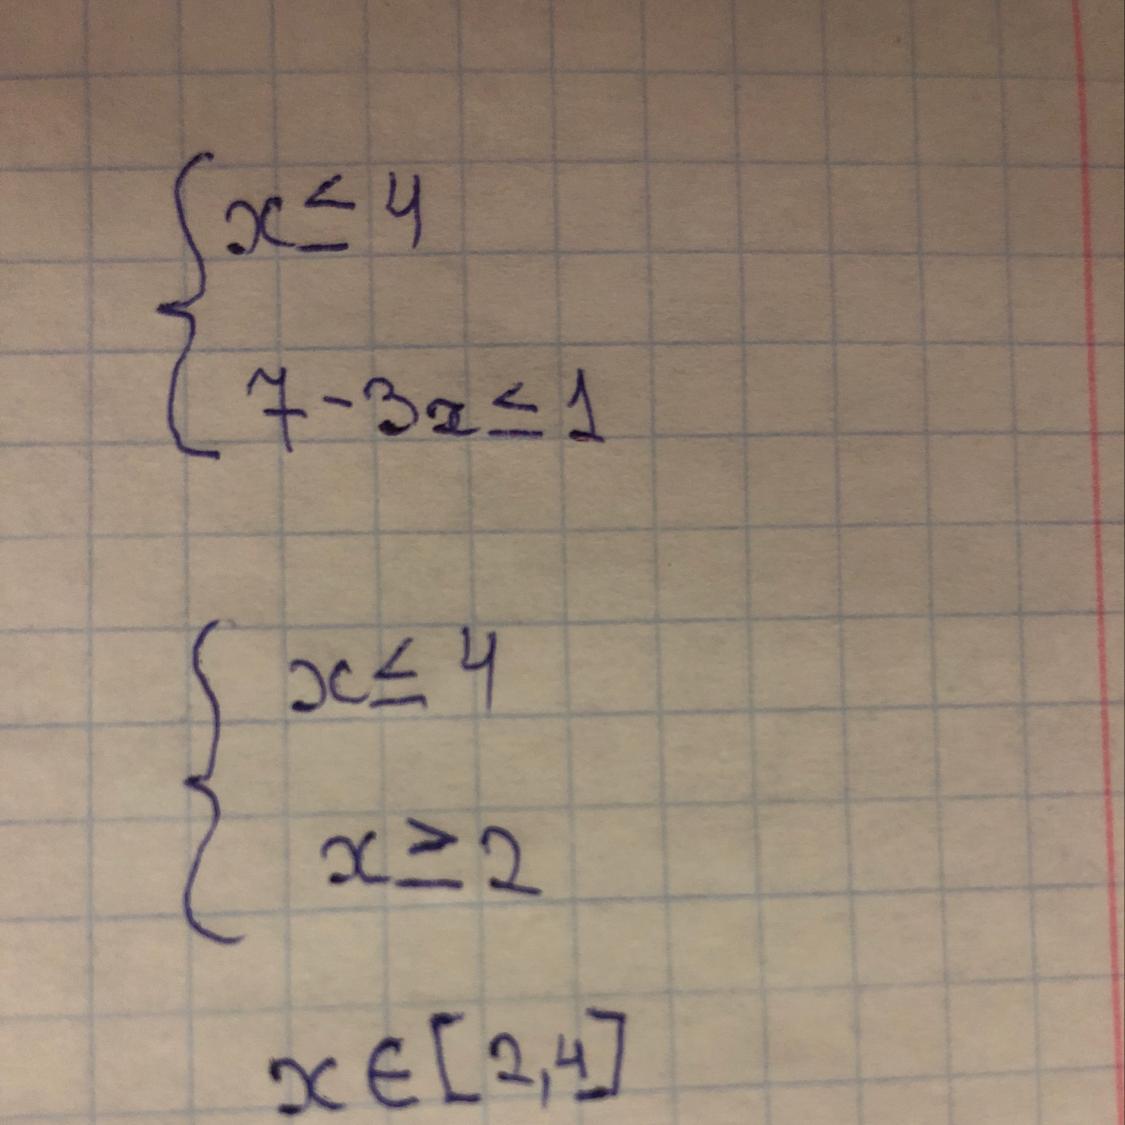 x ≤ 4
7 - 3x ≤ 1
x ≤ 4
x ≥ 2
x ∈ [2,4]